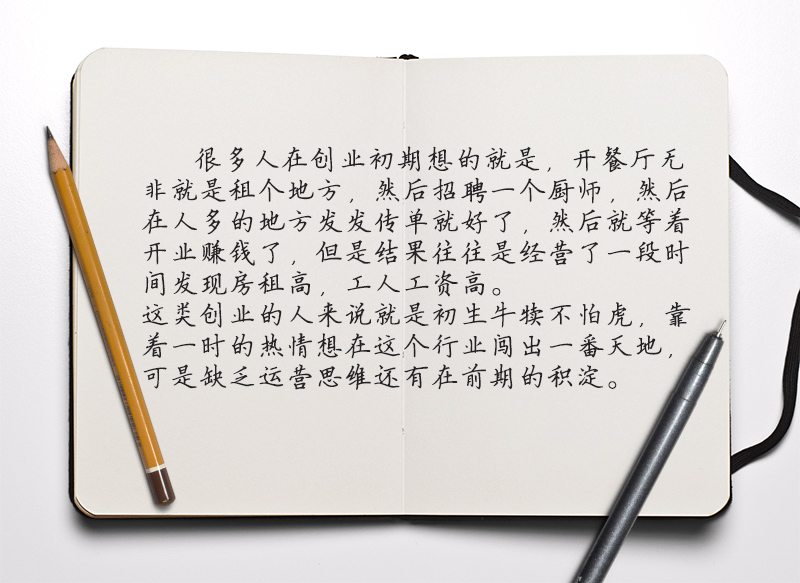 很多人在创业初期想的就是，开餐厅无
非就是租个地方，然后招聘一个厨师，然后
在人多的地方发发传单就好了，然后就等着
开业赚钱了，但是结果往往是经营了一段时
间发现房租高，工人工资高。
这类创业的人来说就是初生牛犊不怕虎，靠
着一时的热情想在这个行业闯出一番天地，
可是缺乏运营思维还有在前期的积淀。